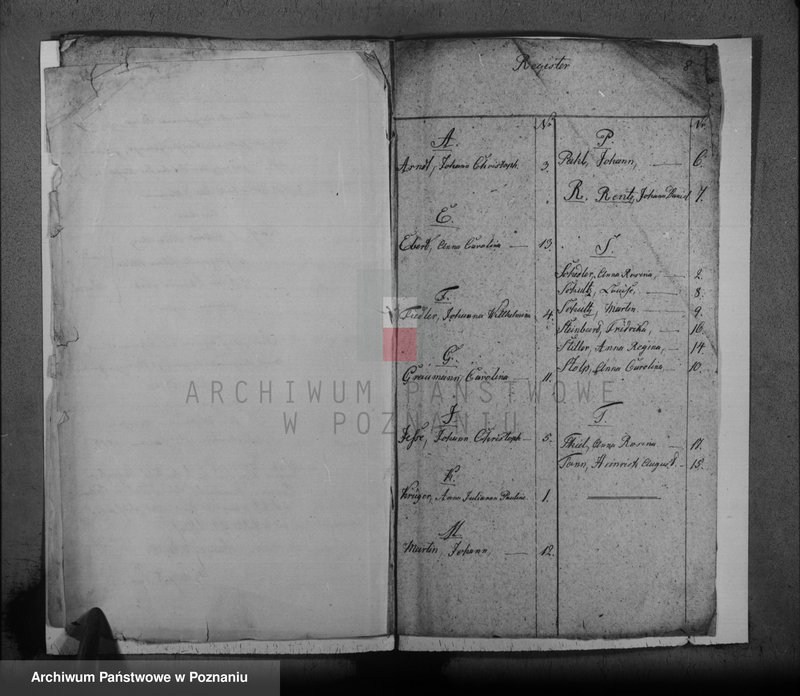 Register
8
No
A.
Arndt, Johann Christoph. 3.
E.
Ebert, Anna Carolina 13.
F.
Fiedler, Johanna Wilhelmina 4.
G.
Graumann, Carolina 11.
J.
Jesse, Johann Christoph 5.
K.
Krüger, Anna Julianna Paulina 1.
M.
Martin, Johann, 12.
Nr.
P.
Pahl, Johann, 6.
R. Rentz, Johann Daniel 7.
S.
Schedler, Anna Rosina, 2.
Schultz, Louise, 8.
Schultz, Martin 9.
Steinborn, Fridrika, 16.
Stiller, Anna Regina, 14.
Stolp, Anna Carolina 10.
T.
Thiel, Anna Rosina 17.
Tonn, Heinrich August. 15.
ARCHIWUM PAŃSTWOWE
W POZNANIU
Archiwum Państwowe w Poznaniu